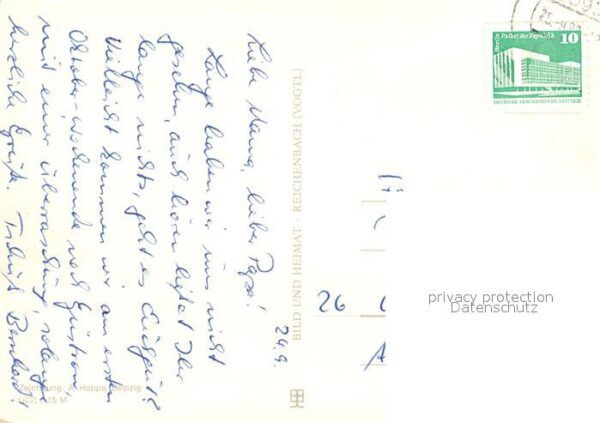 24.9.
Liebe Mama, lieber Papa!
Lange haben wir uns nicht
gesehen, auch hören ließet Ihr
lange nichts, geht es Euch gut?
Vielleicht kommen wir am ersten
Oktober-Wochenende nach Güstrow,
mit einer Überraschung, solange
herzliche Grüße. Tschüß Bernhard!
Zeichnung: A. Hoppe, Leipzig
15 M
BILD UND HEIMAT · REICHENBACH (VOGTL)
Berlin, Palast der Republik
10
DEUTSCHE DEMOKRATISCHE REPUBLIK
26
privacy protection
Datenschutz